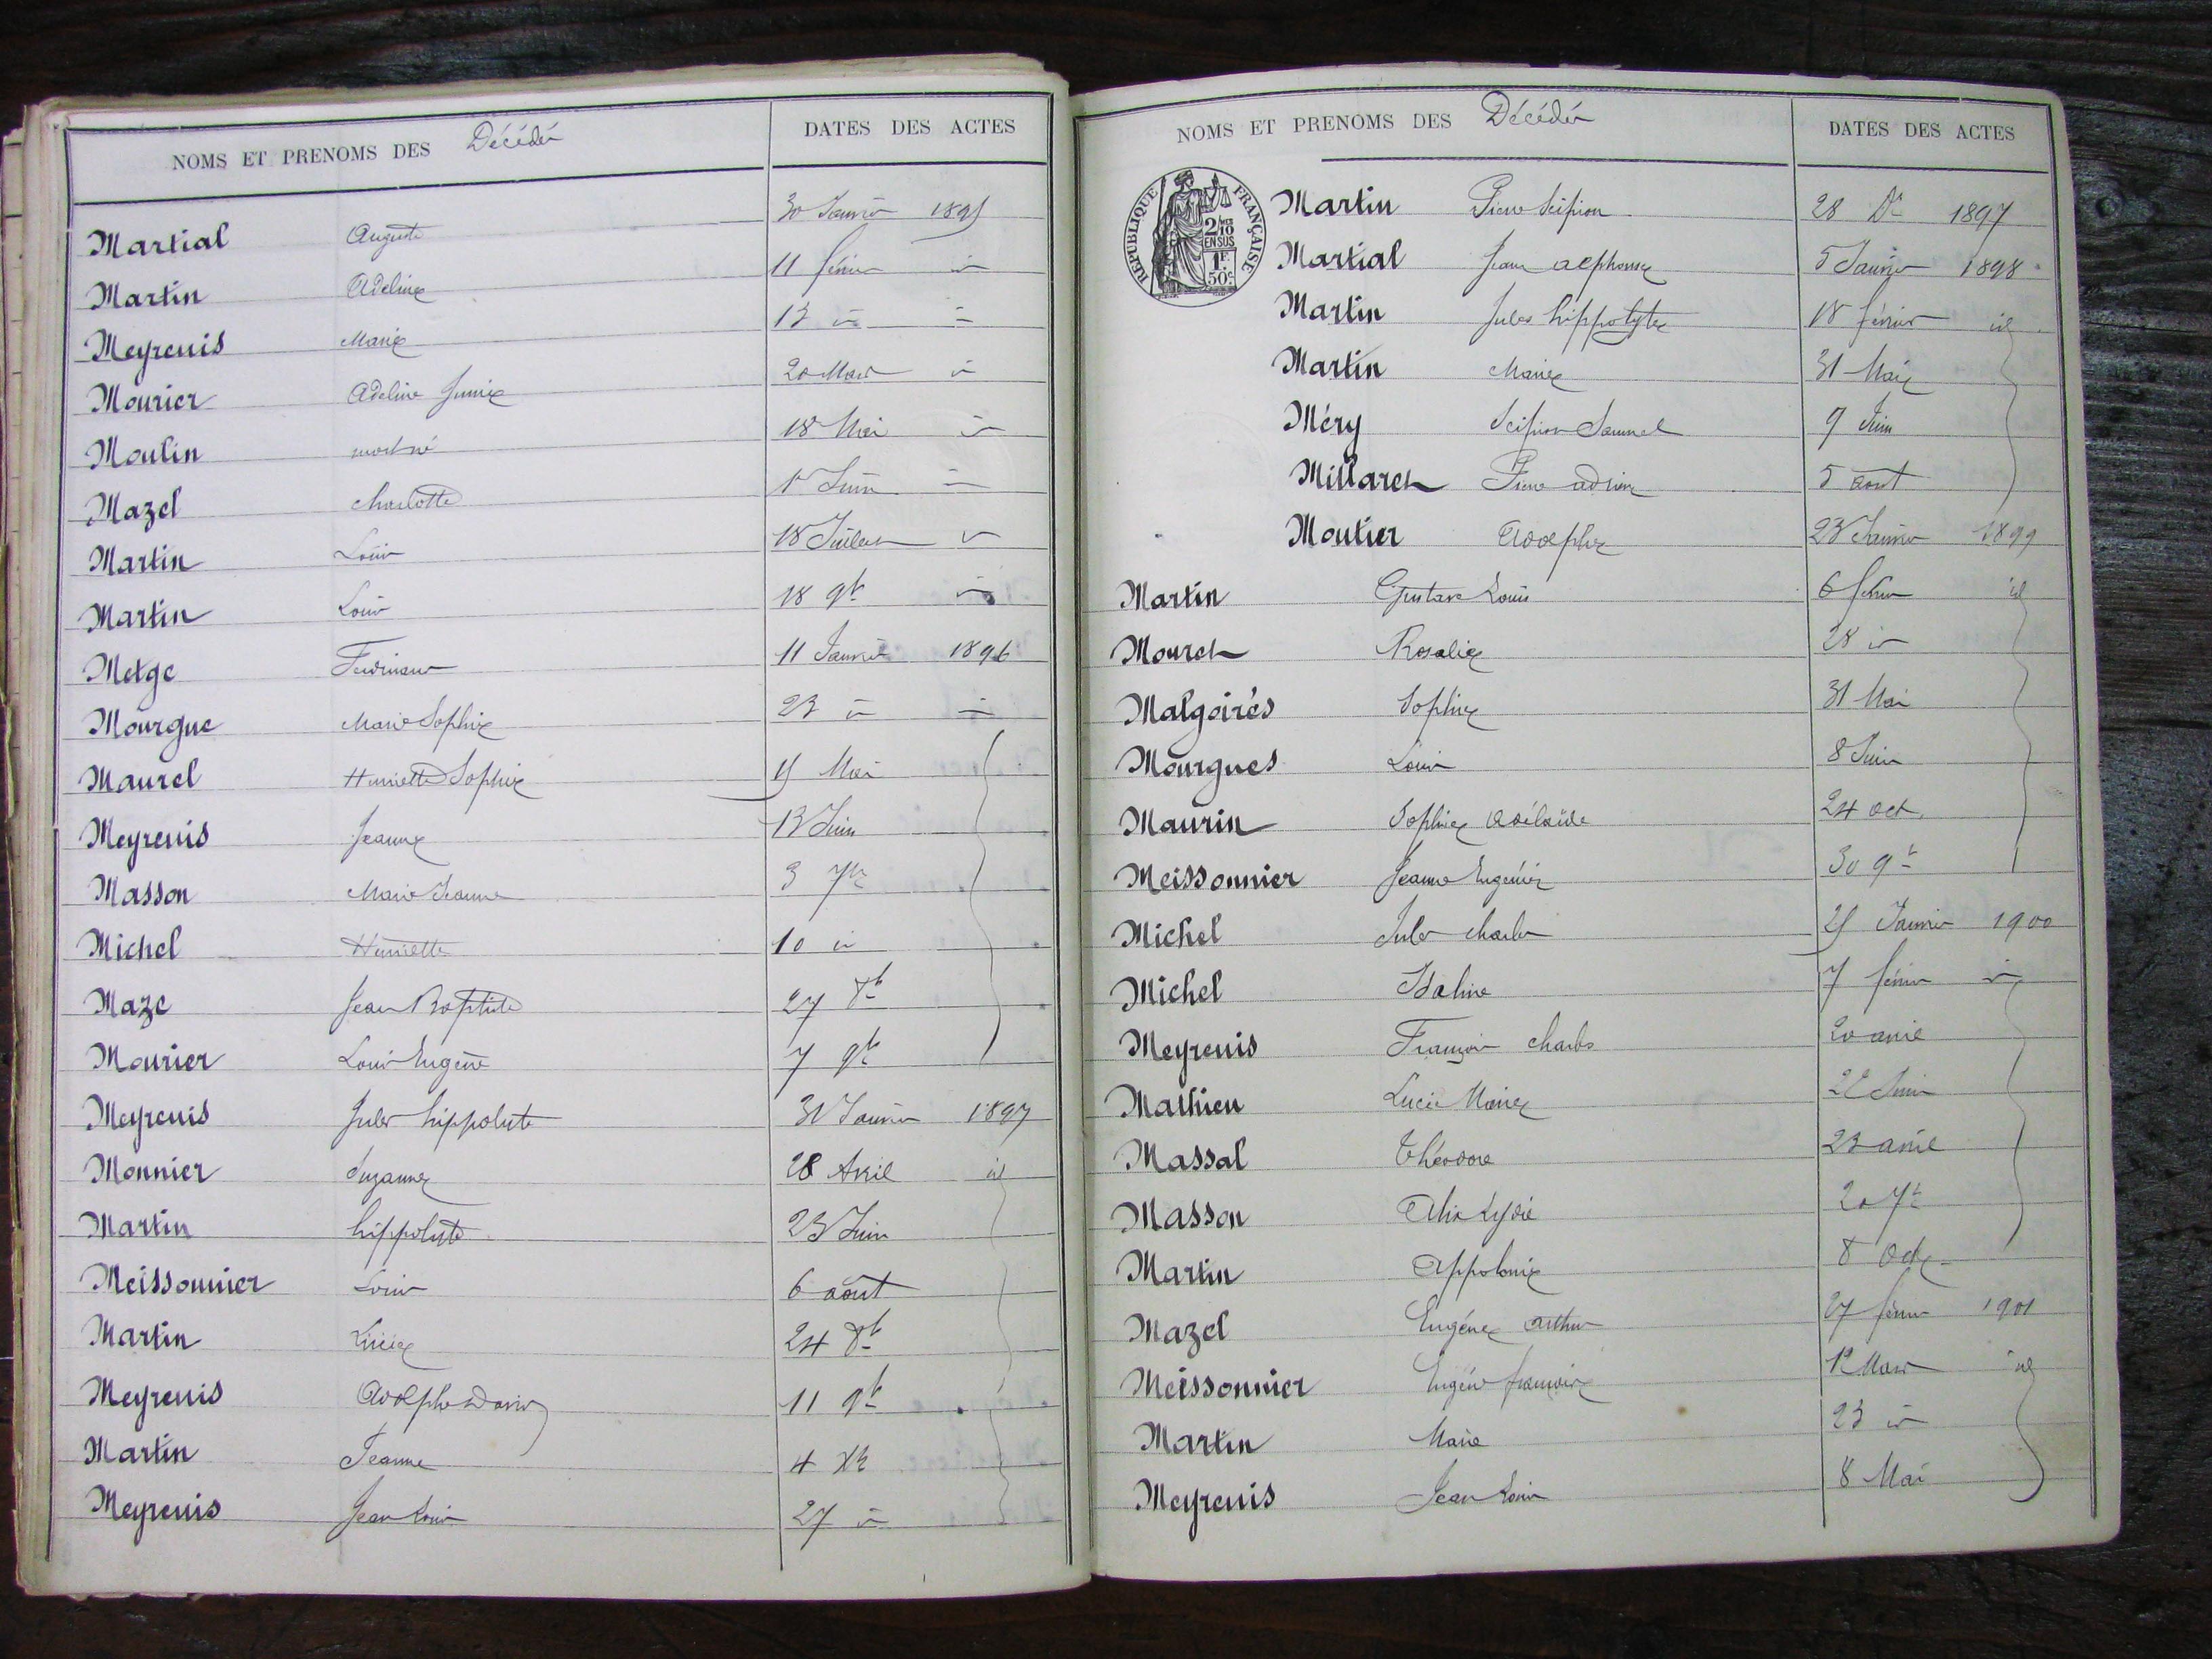 NOMS ET PRENOMS DES Décédés DATES DES ACTES
Martial Auguste 30 Janvier 1895
Martin Adeline 11 février id
Meyrueis Marie 13 id id
Mourier Adeline Junie 20 Mars id
Moulin mort né 18 Mai id
Mazel Charlotte 1r Juin id
Martin Louis 18 Juillet id
Martin Louis 18 9bre id
Metge Ferdinand 11 Janvier 1896
Mourgue Marie Sophie 23 id id
Maurel Henriette Sophie 15 Mai
Meyrueis Jeanne 13 Juin
Masson Marie Jeanne 3 7bre
Michel Henriette 10 id
Maze Jean Baptiste 27 8bre
Mourier Louis Eugène 7 9bre
Meyrueis Jules hippolyte 31 Janvier 1897
Monnier Suzanne 28 Avril id
Martin hippolyte 23 Juin
Meissonnier Louis 6 août
Martin Lucie 24 8bre
Meyrueis Adolphe David 11 9bre
Martin Jeanne 4 Xbre
Meyrueis Jean Louis 27 id
NOMS ET PRENOMS DES Décédés DATES DES ACTES
RÉPUBLIQUE FRANÇAISE
2/10
EN SUS
1F
50c
Martin Pierre Scipion 28 Dr 1897
Martial Jean alphonse 5 Janvier 1898
Martin Jules hippolyte 18 février id
Martin Marie 31 Mai
Méry Scipion Samuel 9 Juin
Millaret Pierre adrien 5 août
Moutier Adolphe 23 Janvier 1899
Martin Gustave Louis 6 février id
Mouret Rosalie 28 id
Malgoirès Sophie 31 Mai
Mourgues Louis 8 Juin
Maurin Sophie Adélaïde 24 oct.
Meissonnier Jeanne Eugénie 30 9bre
Michel Jules Charles 25 Janvier 1900
Michel Isaline 7 février id
Meyrueis François Charles 20 avril
Mathieu Lucie Marie 22 Juin
Massal Théodore 23 avril
Masson Alix Lydie 20 7bre
Martin Appolonie 8 Oct
Mazel Eugène arthur 27 février 1901
Meissonnier Eugénie françoise 12 Mars id
Martin Marie 23 id
Meyrueis Jean Louis 8 Mai